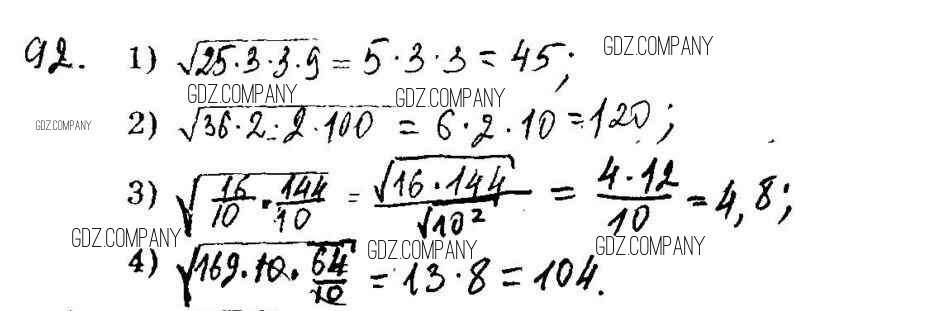 92. 1) √25·3·3·9 = 5·3·3 = 45; GDZ.COMPANY
GDZ.COMPANY GDZ.COMPANY
GDZ.COMPANY 2) √36·2·2·100 = 6·2·10 = 120;
3) √16/10 · 144/10 = √16·144/√10² = 4·12/10 = 4,8;
GDZ.COMPANY GDZ.COMPANY GDZ.COMPANY
4) √169·10·64/10 = 13·8 = 104.